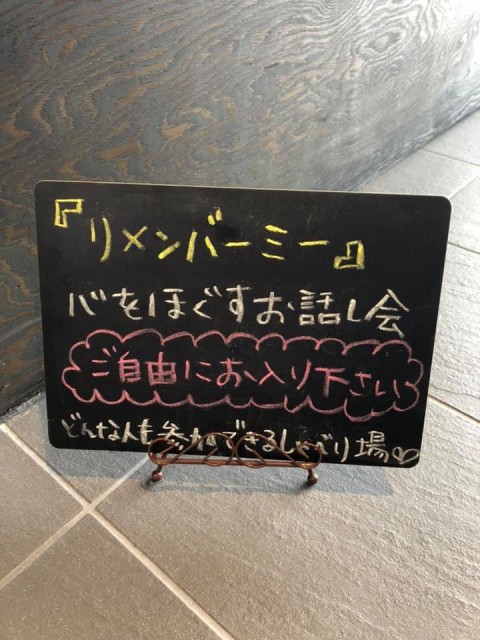 『リメンバーミー』
心をほぐすお話し会
ご自由にお入り下さい
どんな人も参加できるしゃべり場